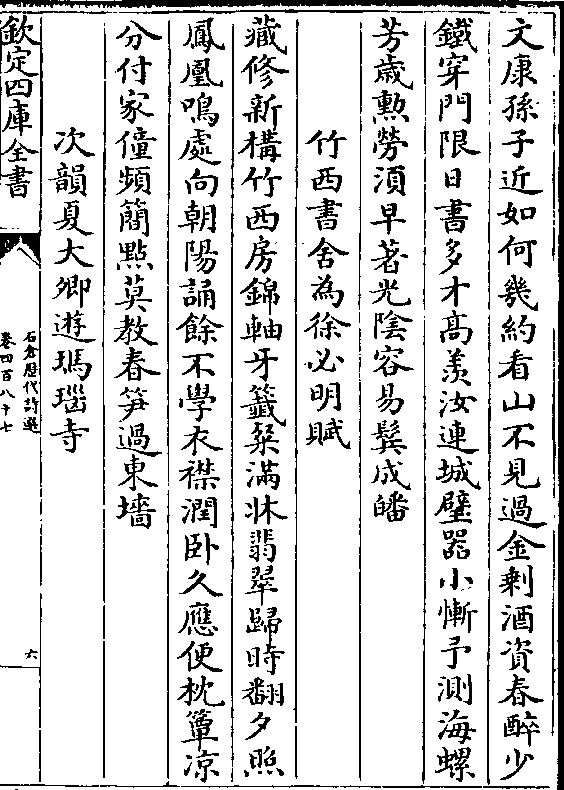 文康孫子近如何幾約看山不見過金剩酒資春醉少
鐵穿門限日書多才高羨汝連城璧器小慚予測海螺
芳歲勲勞須早著光陰容易鬂成皤
竹西書舍為徐必明賦
藏修新構竹西房錦軸牙籤粲滿牀翡翠歸時翻夕照
鳳凰鳴處向朝陽誦餘不學衣襟潤卧久應便枕簟凉
分付家僮頻簡㸃莫教春笋過東墻
次韻夏大卿遊瑪瑙寺
欽定四庫全書
石倉歷代詩選
卷四百八十七
六